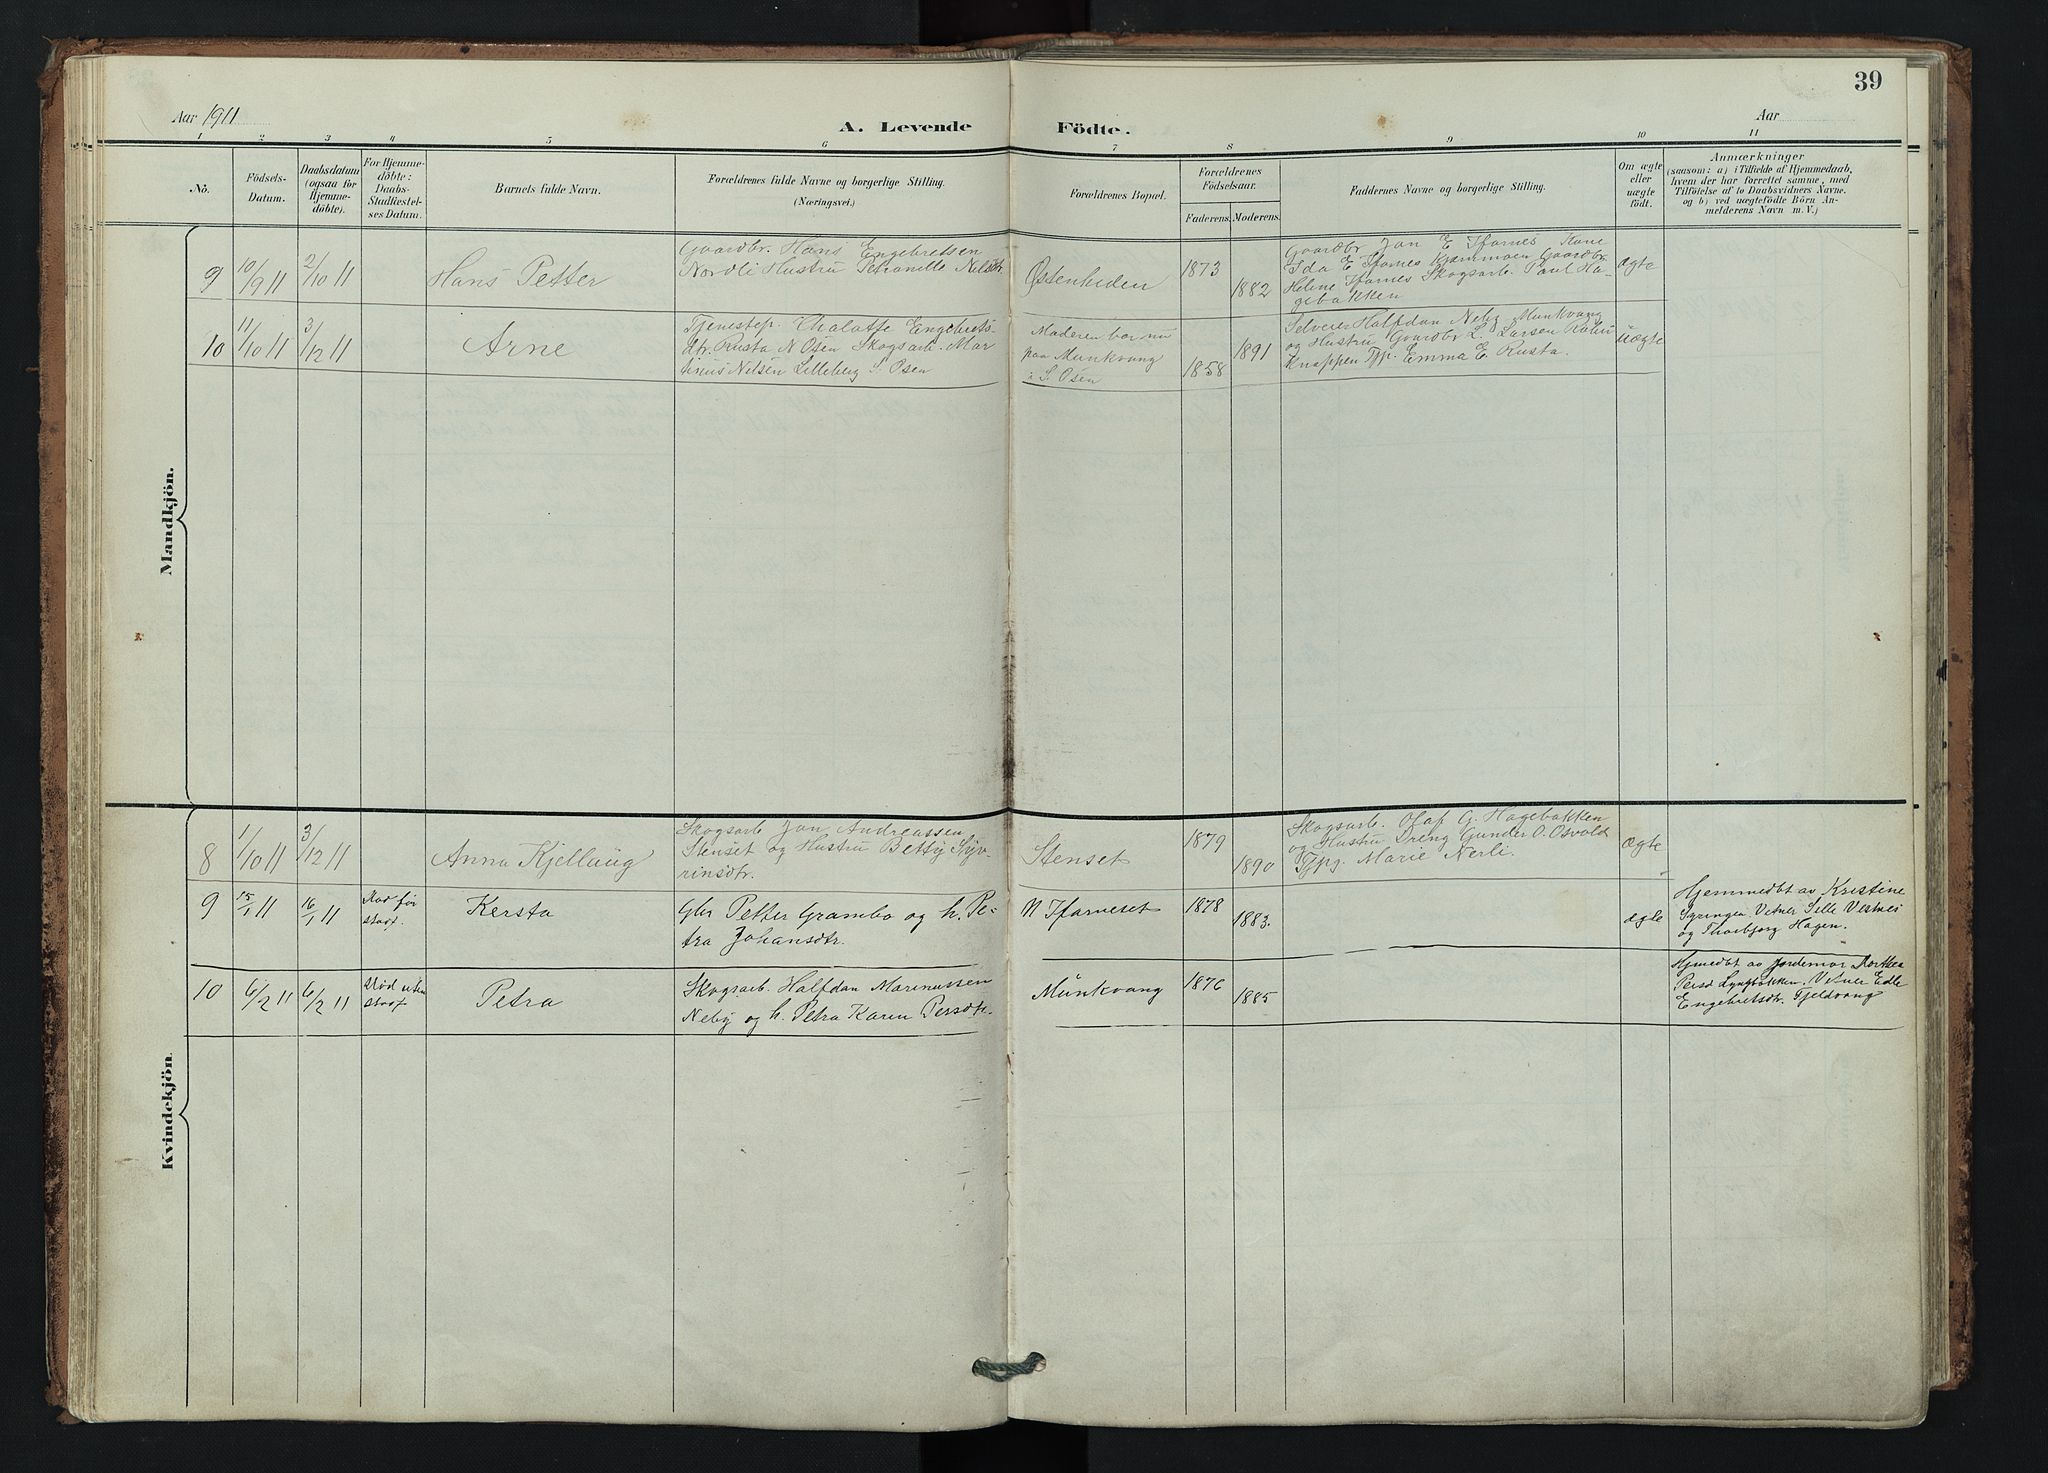 39
Aar 1911
A. Levende Födte.
Aar
1 2 3 4 5 6 7 8 9 10 11
No.
Födsels-
Datum.
Daabsdatum
(ogsaa for
Hjemme-
döbte).
For Hjemme-
döbte:
Daabs-
Stadfæstel-
ses Datum.
Barnets fulde Navn.
Forældrenes fulde Navne og borgerlige Stilling.
(Næringsvei.)
Forældrenes Bopæl.
Forældrenes
Födselsaar.
Faderens. Moderens.
Faddernes Navne og borgerlige Stilling.
Om ægte
eller
uægte
født.
Anmærkninger
(saasom: a) i Tilfælde af Hjemmedaab,
hvem der har forrettet samme, med
Tilföielse af to Daabsvidners Navne.
og b) ved uægtefödte Börn An-
melderens Navn m. V.)
Mandkjön.
9
10/9 11
2/10 11
Hans Petter
Gaardbr. Hans Engebretsen
Nordli Hustru Petronille Nilsdtr.
Østenheden
1873
1882
Gaardbr Jon E Tfarnes Kone
Ida E Tfarnes Gaardbr
Helene Tfarnes Skogsarb. Paul Ha-
gebakken
ægte
10
11/10 11
3/12 11
Arne
Tjenestep. Chalotte Engebrets-
dtr. Rusta N Osen Skogsarb. Mar
tinus Nilsen Lilleberg S. Osen
Moderen bor nu
paa Munkvang
i S. Osen
1858
1891
Selveier Halfdan Neby Munkvang
og Hustru Gaardbr L. Larsen
Knappen Tjp. Emma E. Rusta.
uægte
Kvindekjön.
8
1/10 11
3/12 11
Anna Kjellaug
Skogsarb Jon Andreassen
Stenset og Hustru Betsy Syv-
rinsdtr.
Stenset
1879
1890
Skogsarb. Olaf G. Hagebakken
og Hustru Dreng Gunder O. Osvold
Tjpg. Marie Nerli.
ægte
9
15/1 11
16/1 11
Død før
stadf.
Kersta
Gbr Petter Grambo og h. Pe-
tra Johansdtr.
N Tfarneset
1878
1883.
ægte
Hjemmedbt av Kristine
Syringen Vitner Sille Vestnes
og Thorbjørg Hagen.
10
6/2 11
6/2 11
død uten
stadf
Petra
Skogsarb. Halfdan Marinussen
Neby og h. Petra Karen Persdtr.
Munkvang
1876
1885
Hjmedbt av Jordemor Dorthea
Persd Lyngbakken. Vitner Edle
Engebretsdtr. Fjeldvang